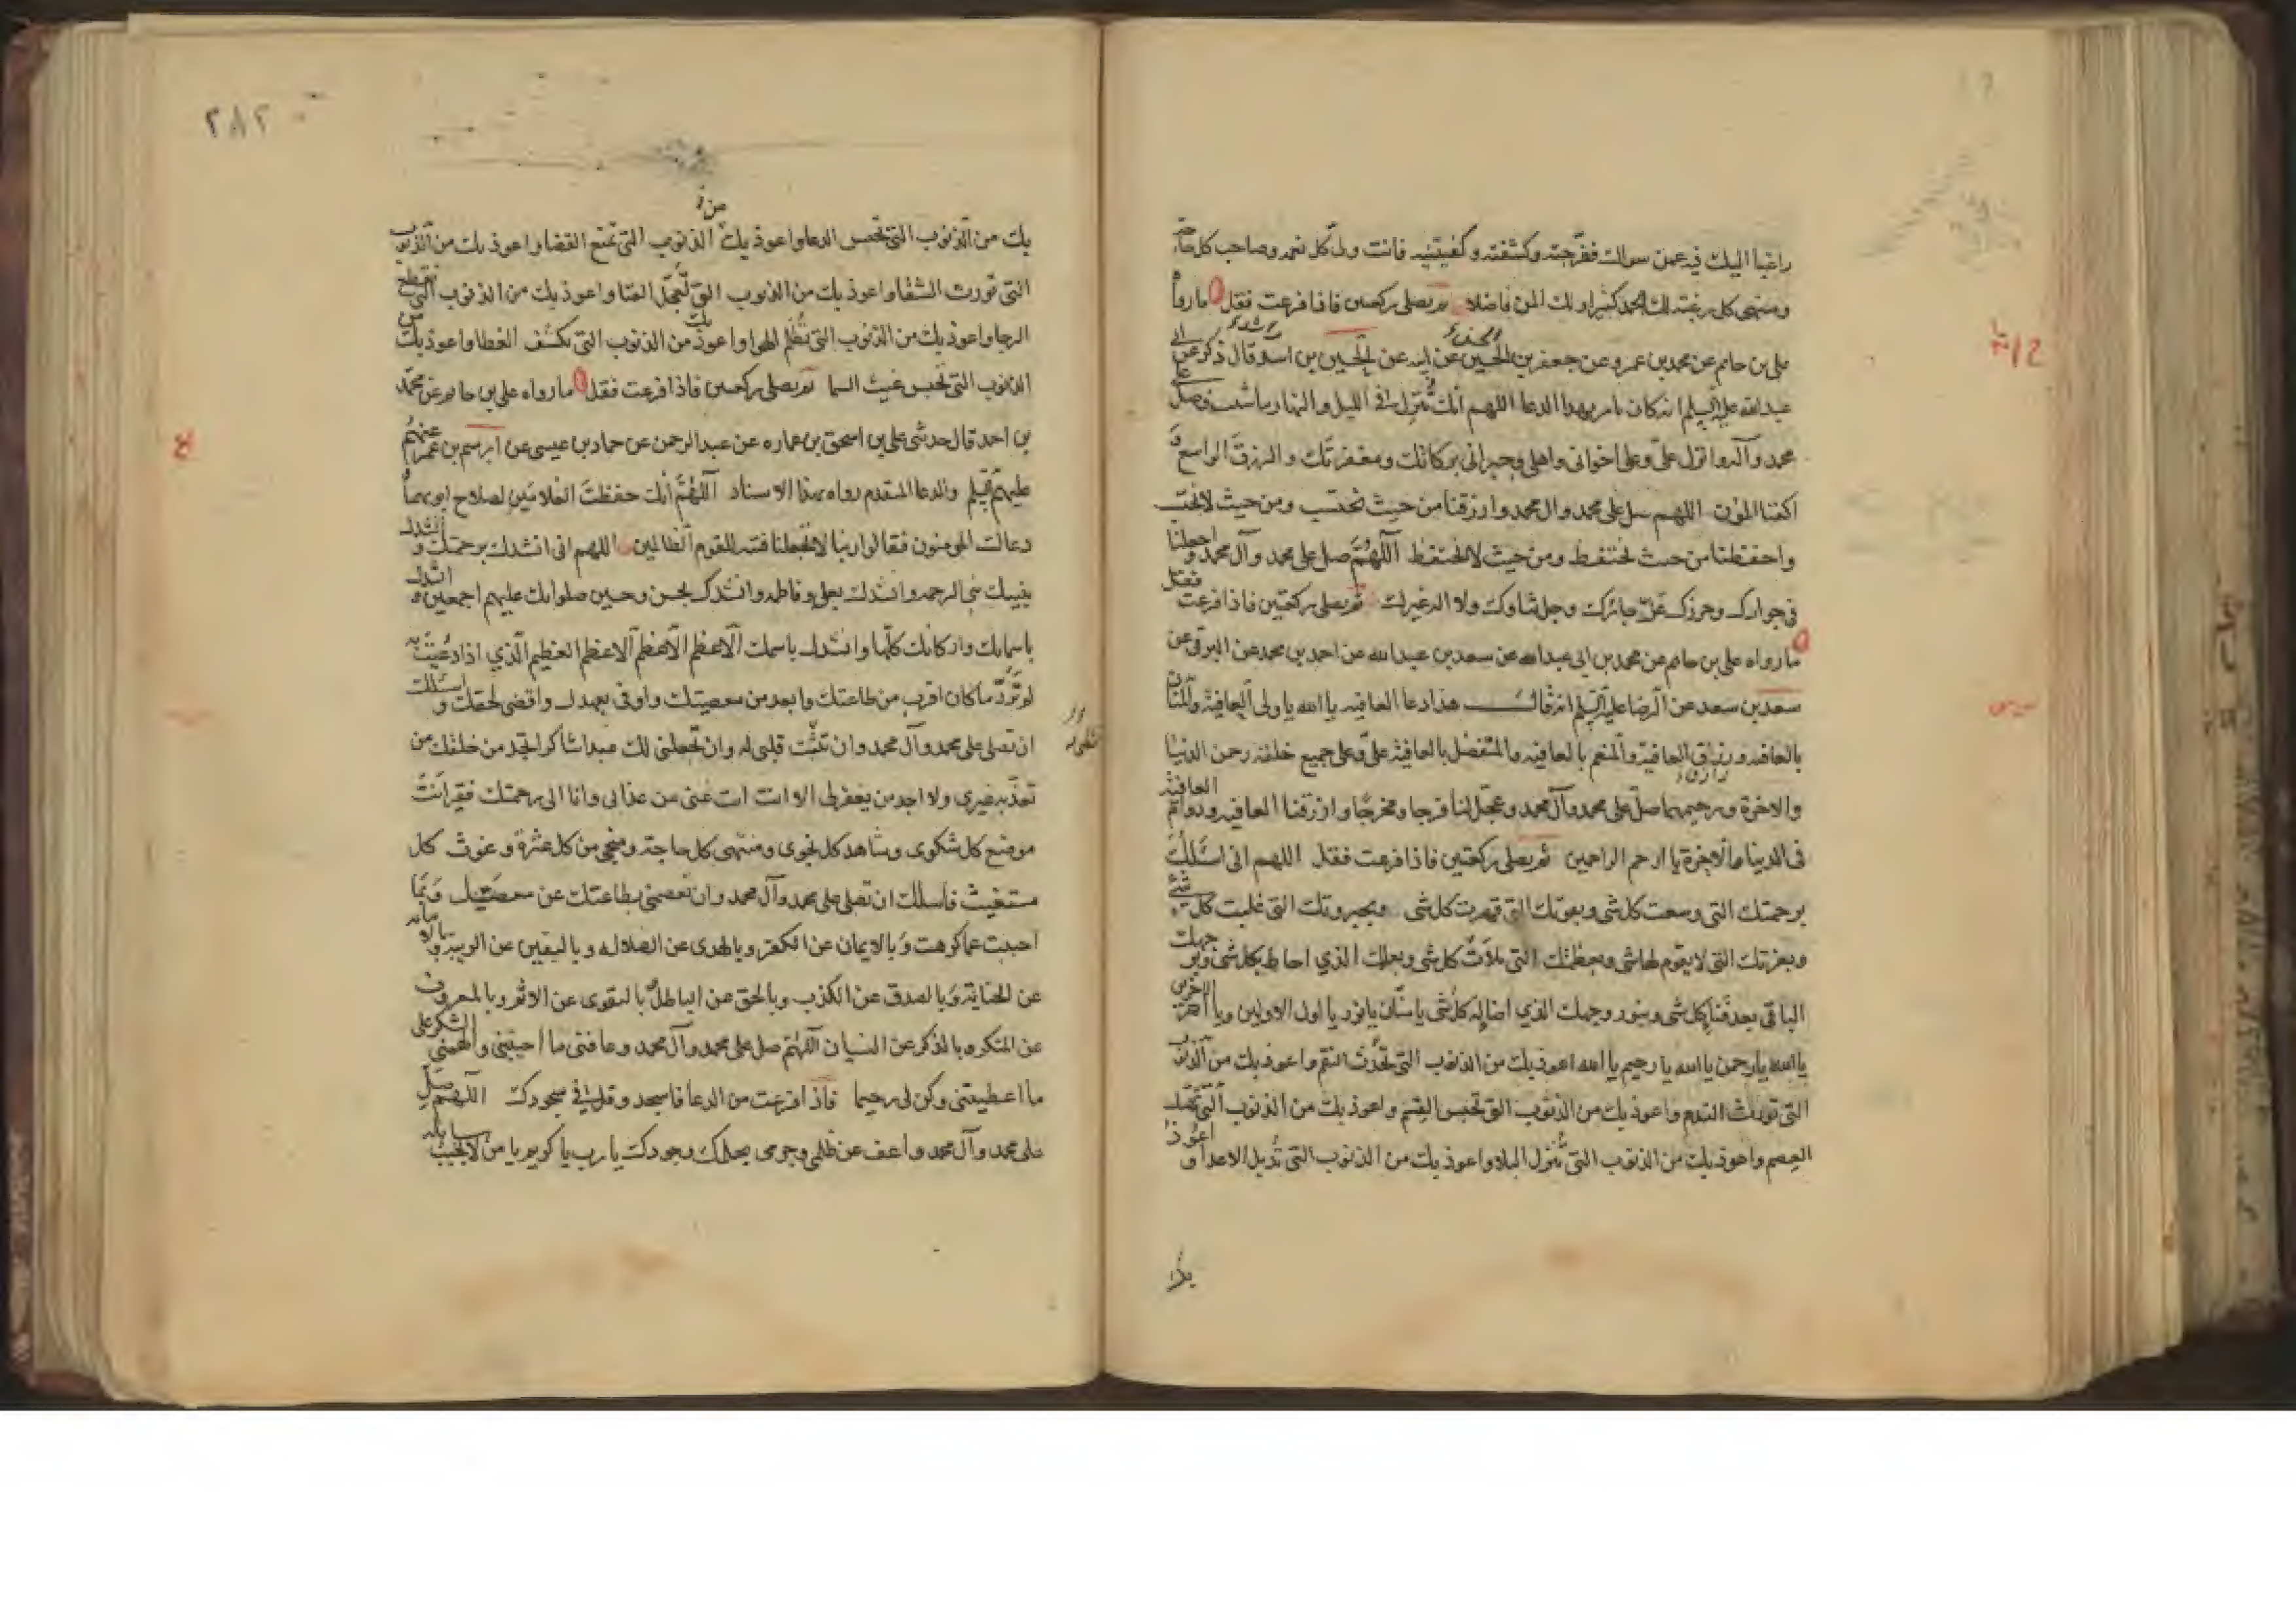 راغبا اليك فيه عمن سواك ففرجته وكشفته وكفيتنيه فانت ولي كل نعمه وصاحب كل حاجة
ومنتهى كل رغبة لك الحمد كثيرا ولك المن فاضلا ثم يصلى ركعتين فاذا فرغت فقل ما رواه
على بن حاتم عن محمد بن عمرو عن جعفر بن الحسين عن ابيه عن الحسين بن اسد قال ذكر عن ابي
عبدالله عليه السلم انه كان يامر بهذا الدعا اللهم انك تنزل في الليل والنهار ما شئت فصل على
محمد وآله وانزل علىّ وعلى اخوانى واهلى وجيرانى بركاتك ومغفرتك والرزق الواسع و
اكفنا المؤن اللهم صل على محمد وال محمد وارزقنا من حيث نحتسب ومن حيث لا نحتسب
واحفظنا من حيث نحتفظ ومن حيث لا نحتفظ اللهم صل على محمد وآل محمد واجعلنا
في جوارك وحرزك عزّ جارك وجل ثناؤك ولا اله غيرك ثم يصلى ركعتين فاذا فرغت فقل
ما رواه على بن حاتم عن محمد بن ابى عبدالله عن سعد بن عبدالله عن احمد بن محمد عن البرقى عن
سعد بن سعد عن الرضا عليه السلم انه قال هذا دعا العافيه يا الله يا ولى العافية والمنان
بالعافيه ورزاق العافية والمنعم بالعافيه والمتفضل بالعافية علىّ وعلى جميع خلقه رحمن الدنيا
والاخرة ورحيمهما صلّ على محمد وآل محمد وعجّل لنا فرجا ومخرجًا وارزقنا العافيه ودوام العافية
فى الدينا والاخرة يا ارحم الراحمين ثم يصلى ركعتين فاذا فرغت فقل اللهم انى اسئلك
برحمتك التى وسعت كل شى وبعزتك التى قهرت كل شى وبجبروتك التى غلبت كل شئ
وبعزتك التى لا يقوم لها شى وبعظمتك التى ملات كل شى وبعلمك الذي احاط بكل شى وبوجهك
الباقى بعد فنا كل شى وبنور وجهك الذي اضا له كل شى يا منان يا نور يا اول الاولين ويا اخر الاخرين
يا الله يا رحمن يا الله يا رحيم يا الله اعوذ بك من الذنوب التى تحدث النقم واعوذ بك من الذنوب
التى تورث الندم واعوذ بك من الذنوب التى تحبس القسم واعوذ بك من الذنوب التى تهتك
العصم واعوذ بك من الذنوب التى تنزل البلا واعوذ بك من الذنوب التى تديل الاعدا واعوذ
٢٨٢
بك من الذنوب التى تحبس الدعا واعوذ بك من الذنوب التى تمنع القضا واعوذ بك من الذنوب
التى تورث الشقا واعوذ بك من الذنوب التى تُعجّل الفنا واعوذ بك من الذنوب التى تقطع
الرجا واعوذ بك من الذنوب التى تُظلم الهوا واعوذ بك من الذنوب التى تكشف الغطا واعوذ بك من
الذنوب التى تحبس غيث السما ثم يصلى ركعتين فاذا فرغت فقل ما رواه على بن حاتم عن محمّد
بن احمد قال حدثنى على بن اسحق بن عماره عن عبد الرحمن عن حماد بن عيسى عن ابرهيم بن عمر عنهم
عليهم السلم والدعا المتقدم رواه بهذا الاسناد اللهُمّ انك حفظتَ الغلامَين لصلاح ابويهما و
دعاك المومنون فقالوا ربنا لا تجعلنا فتنه للقوم الظالمين اللهم انى انشدك برحمتك وانشدك
بنبيك نبى الرحمه وانشدك بعلى وفاطمه وانشدك بحسن وحسين صلواتك عليهم اجمعين وانشدك
باسمائك واركانك كلّها وانشدك باسمك الاعظم الاعظم الاعظم العظيم الّذي اذا دعيتَ به
لم تردّ ما كان اقرب من طاعتك وابعد من معصيتك واوفى بعهدك واقضى لحقك واسئلك
ان تصلى على محمد وآل محمد وان تنشّط قلبى له وان تجعلنى لك عبدا شاكرا تجد من خلقك من
تعذّبه غيري ولا اجد من يغفر لى الا انت انت غنى عن عذابى وانا الى رحمتك فقير انتَ
موضع كل شكوى وشاهد كل نجوى ومنتهى كل حاجة ومنجى من كل عثرةٍ وغوث كل
مستغيث فاسئلك ان تصلى على محمد وآل محمد وان تعصمنى بطاعتك عن معصيتك وبما
احببت عما كرهت وبالايمان عن الكفر وبالهدى عن الضلاله وباليقين عن الريبه وبالامانه
عن الخيانة وبالصدق عن الكذب وبالحق عن الباطل وبالتقوى عن الاثم وبالمعروف
عن المنكر وبالذكر عن النسيان اللهُمّ صل على محمد وآل محمد وعافنى ما احييتنى والهمنى الشكر على
ما اعطيتنى وكن لى رحيما فاذا فرغت من الدعا فاسجد وقل في سجودك اللهم صلّ
على محمد وآل محمد واعف عن ظلمى وجرمى بحلمك وجودك يا رب يا كريم يا من لا يخيب سائله